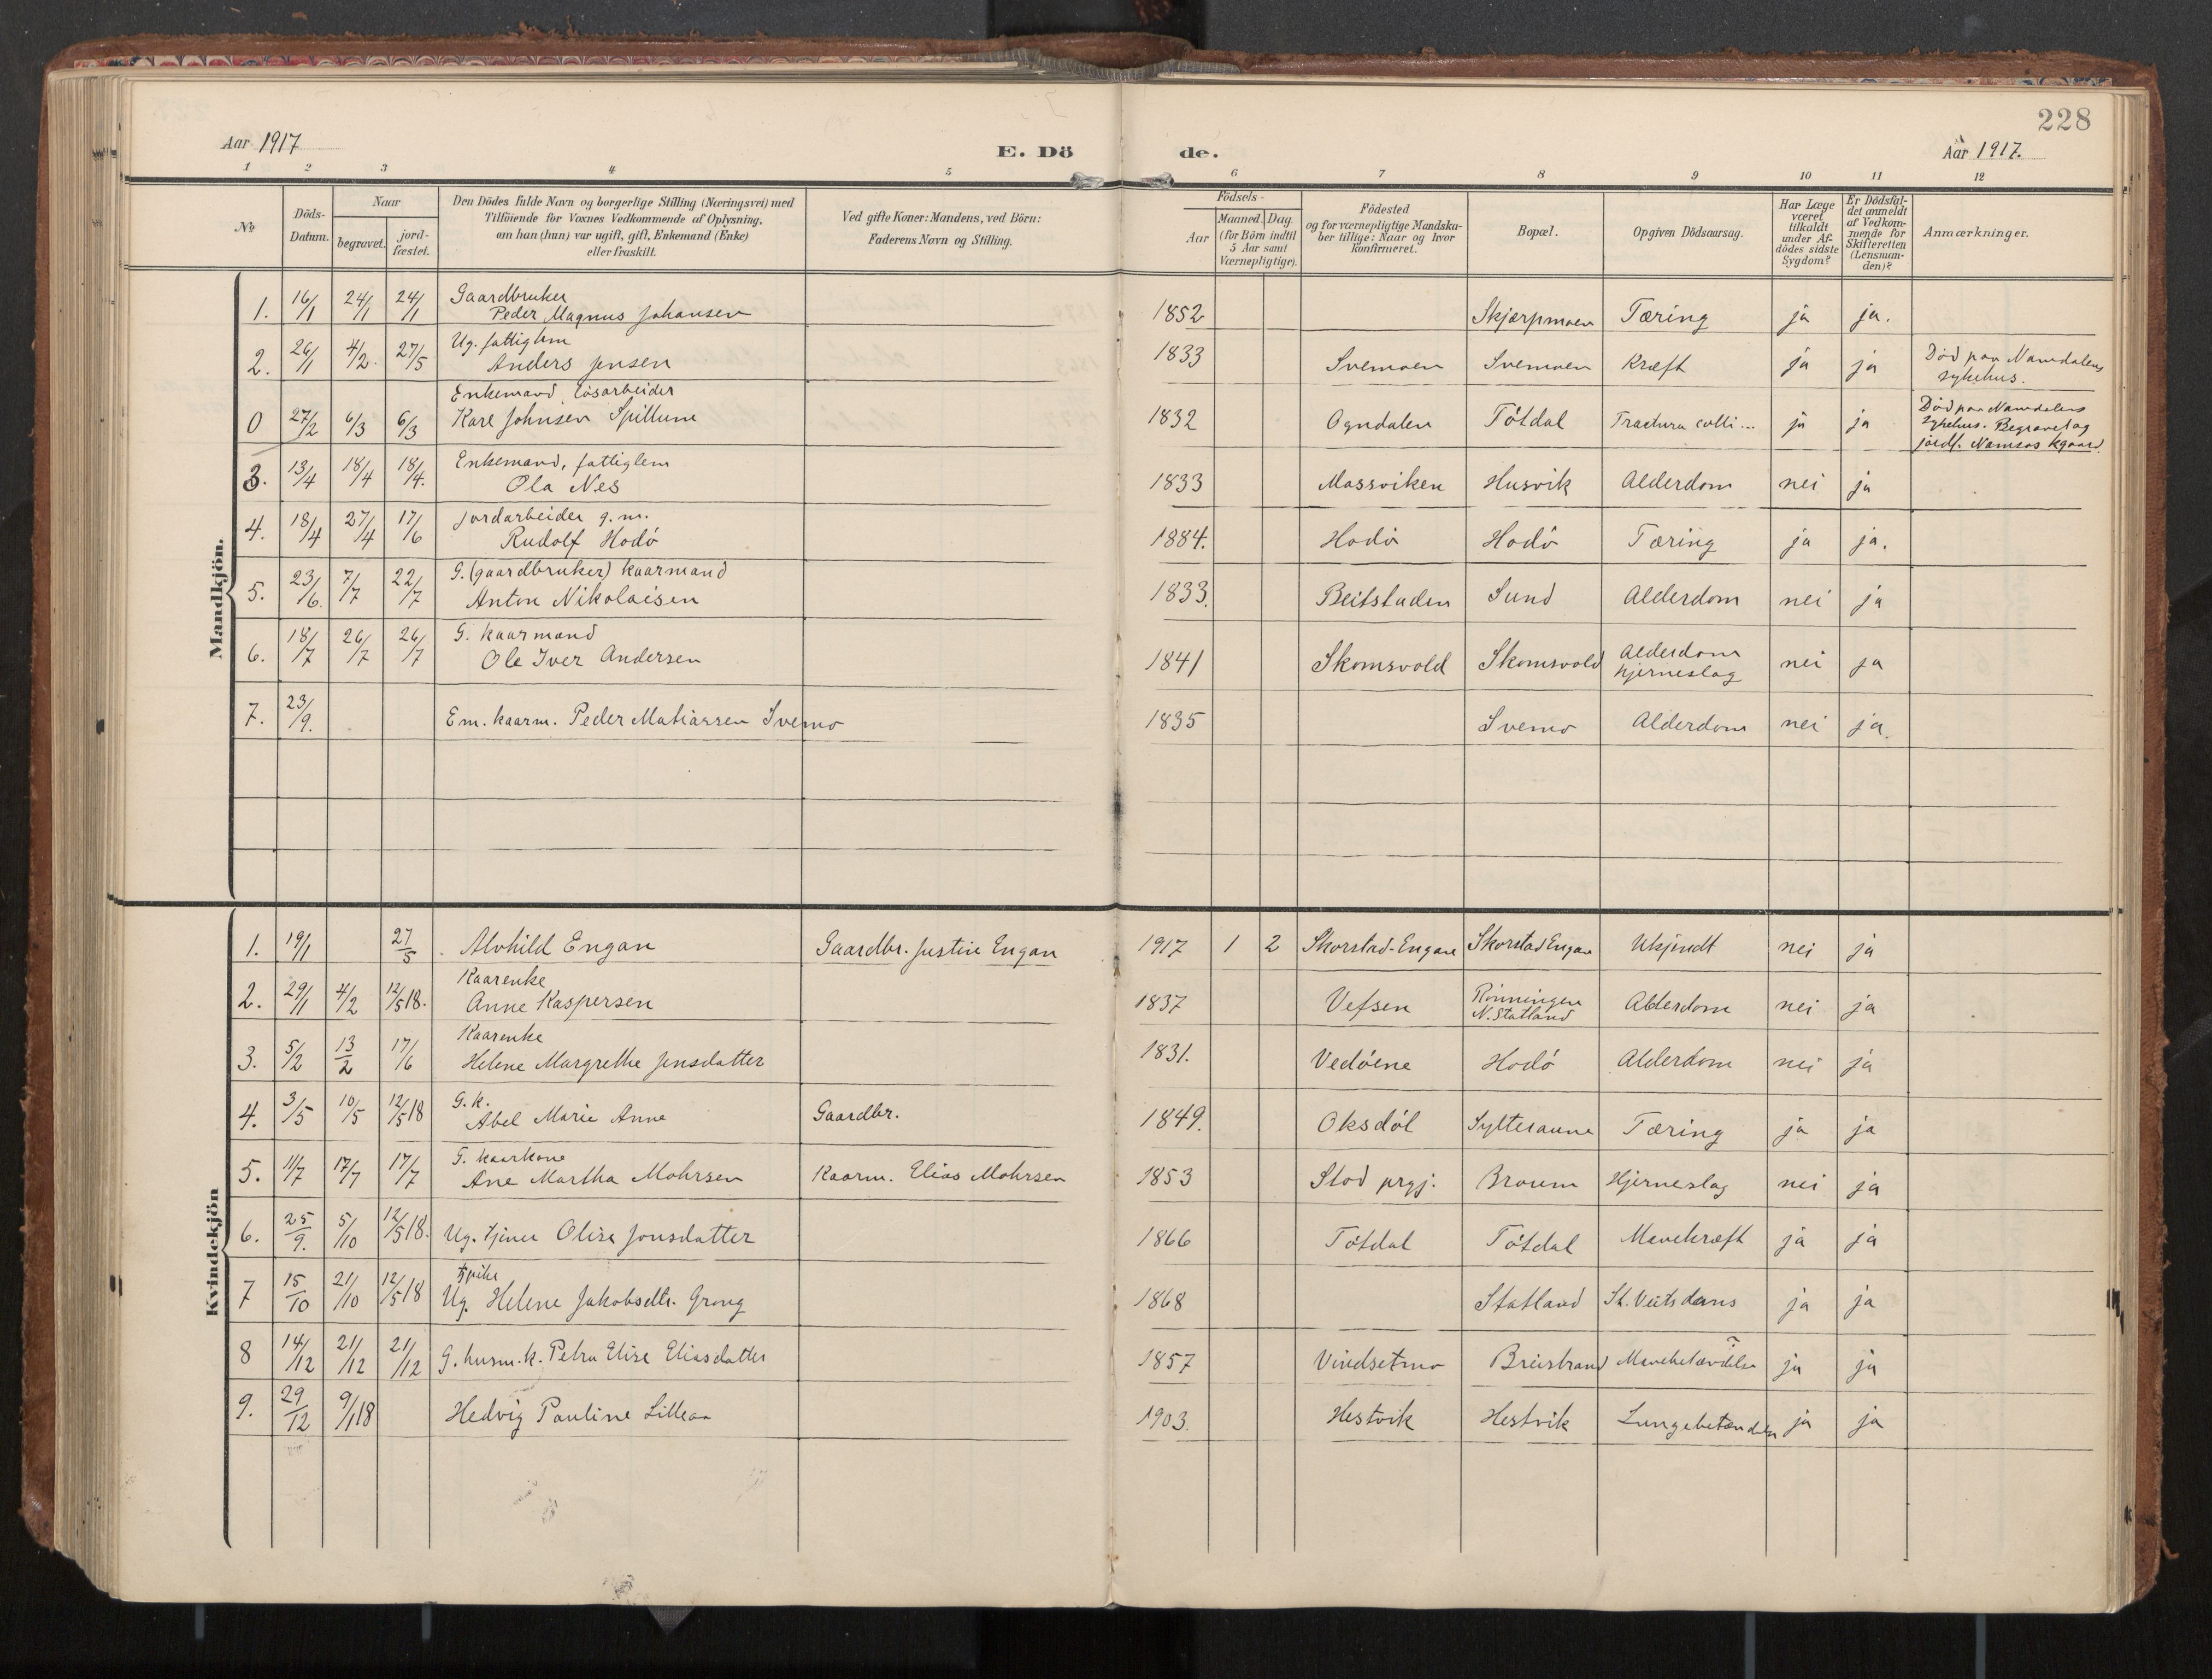 228
Aar 1917
E. Dö de.
Aar 1917.
1 2 3 4 5 6 7 8 9 10 11 12
No
Döds-Datum.
Naar
begravet.
jord-fæstet.
Den Dödes fulde Navn og borgerlige Stilling (Næringsvei) med
Tilföiende for Voxnes Vedkommende af Oplysning,
om han (hun) var ugift, gift, Enkemand (Enke)
eller fraskilt.
Ved gifte Koner: Mandens, ved Börn:
Faderens Navn og Stilling.
Födsels-
Aar
Maaned. Dag.
(for Börn indtil
5 Aar samt
Værnepligtige).
Födested
og for værnepligtige Mandska-
ber tillige: Naar og hvor
konfirmeret.
Bopæl.
Opgiven Dödsaarsag.
Har Læge
været
tilkaldt
under Af-
dödes sidste
Sygdom?
Er Dödsfal-
det anmeldt
af Vedkom-
mende for
Skifteretten
(Lensman-
den)?
Anmærkninger.
Mandkjön.
1. 16/1 24/1 24/1 Gaardbruker
Peder Magnus Johansen 1852 Skjærpmoen Tæring ja ja.
2. 26/1 4/2. 27/5 Ug. fattiglem
Anders Jensen 1833 Svemoen Svemoen Kræft ja ja Död paa Namdalens
sykehus.
0 27/2 6/3 6/3 Enkemand, lösarbeider
Karl Johnsen Spillum 1832 Ogndalen Tötdal Fractura colli... ja ja Död paa Namdalens
sykehus. Begravet og
jordf. Namsos kgaard.
3. 13/4 18/4 18/4. Enkemand, fattiglem
Ola Nes 1833 Massviken Husvik Alderdom nei ja
4. 18/4 27/4 17/6 Jordarbeider g.m.
Rudolf Hodö 1884. Hodö Hodö Tæring ja ja.
5. 23/6. 7/7 22/7 G. (gaardbruker) kaarmand
Anton Nikolaisen 1833. Beitstaden Sund Alderdom nei ja
6. 18/7 26/7 26/7 G. kaarmand
Ole Iver Andersen 1841 Skomsvold Skomsvold Alderdom
hjerneslag nei ja
7. 23/9. Em. kaarm. Peder Matiassen Svemo 1835 Svemo Alderdom nei ja.
Kvindekjön
1. 19/1 27/5 Alvhild Engan Gaardbr. Justin Engan 1917 1 2 Skorstad-Engan Skorstad Engan Ukjendt nei ja
2. 29/1 4/2 12/5 18. Kaarenke
Anne Kaspersen 1837 Vefsen Rönningen
N. Statland Alderdom nei ja
3. 5/2 13/2 17/6 Kaarenke
Helene Margrethe Jensdatter 1831. Vedöene Hodö Alderdom nei ja
4. 3/5 10/5 12/5 18 G.k.
Abel Marie Anne Gaardbr. 1849. Oksdöl Sylteraune Tæring ja ja
5. 11/7 17/7 17/7 G. kaarkone
Ane Martha Mohrsen Kaarm. Elias Mohrsen 1853 Stod prgj. Braum Hjerneslag nei ja
6. 25/9. 5/10 12/5 18. Ug. tjener Olise Jonsdatter 1866 Tötdal Tötdal Mavekræft ja ja
7 15/10 21/10 12/5 18 Ug. tjpike Helene Jakobsdtr. Grong 1868 Statland St. Veitsdans ja ja
8 14/12 21/12 21/12 G. husm.k. Petra Elise Eliasdatter 1857 Vindsetmo Breistrand Mavebetændelse ? ja ja
9. 29/12 9/1 18 Hedvig Pauline Lilleaa 1903. Hestvik Hestvik Lungebetændelse ja ja